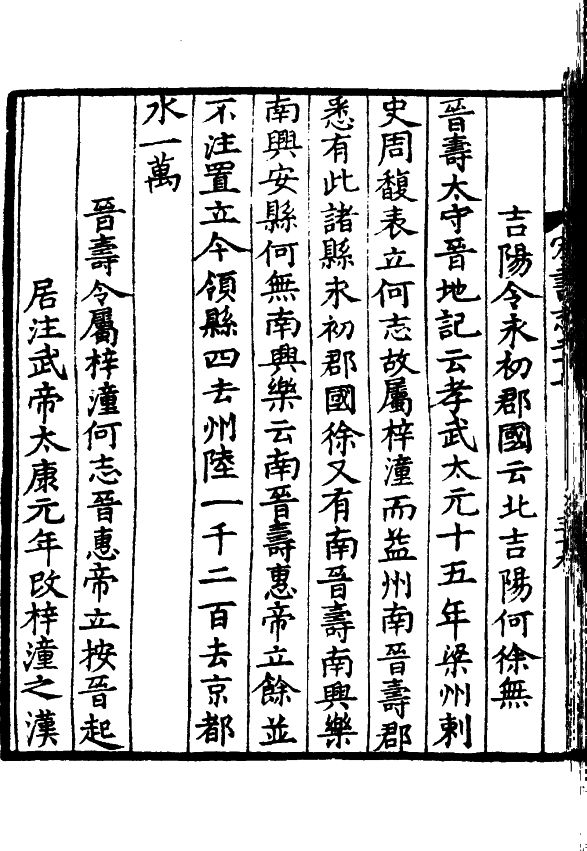 吉陽令永初郡國云北吉陽何徐無
晉壽太守晉地記云孝武太元十五年梁州刺
史周馥表立何志故屬梓潼而益州南晉壽郡
悉有此諸縣永初郡國徐又有南晉壽南興樂
南興安縣何無南興樂云南晉壽惠帝立餘並
不注置立今領縣四去州陸一千二百去京都
水一萬
晉壽令屬梓潼何志晉惠帝立按晉起
居注武帝太康元年改梓潼之漢